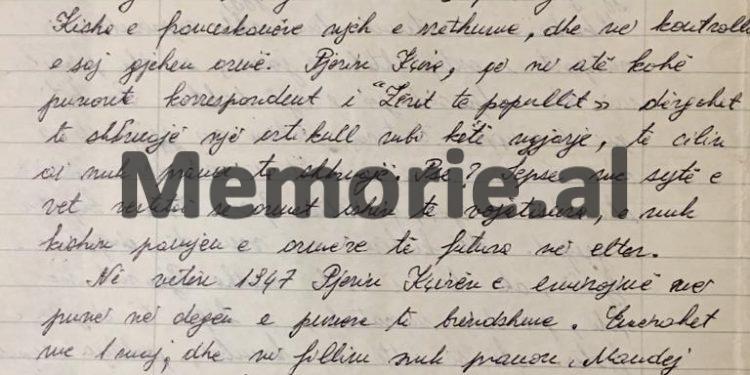 Kisha e françeskanëve njëh e rrethume, dhe në kontrollin
e saj gjehen armë. Pjerin Kçira, që në atë kohë
punonte korrespondent i "Zërit të popullit" dërgohet
të shkruajë një artikull mbi këtë ngjarje, të cilin
ai nuk pranoi ta shkruajë. Pse? Sepse me sytë e
vet vërtetoi se armët ishin të vajatosura, e nuk
kishin pamjen e armëve të futura në elter.
Në vitin 1947 Pjerin Kçirën e emërojnë me
punë në degën e punëve të brendshme. Emërohet
me 1 maj, dhe në fillim nuk pranon. Mandej
Memorie.al